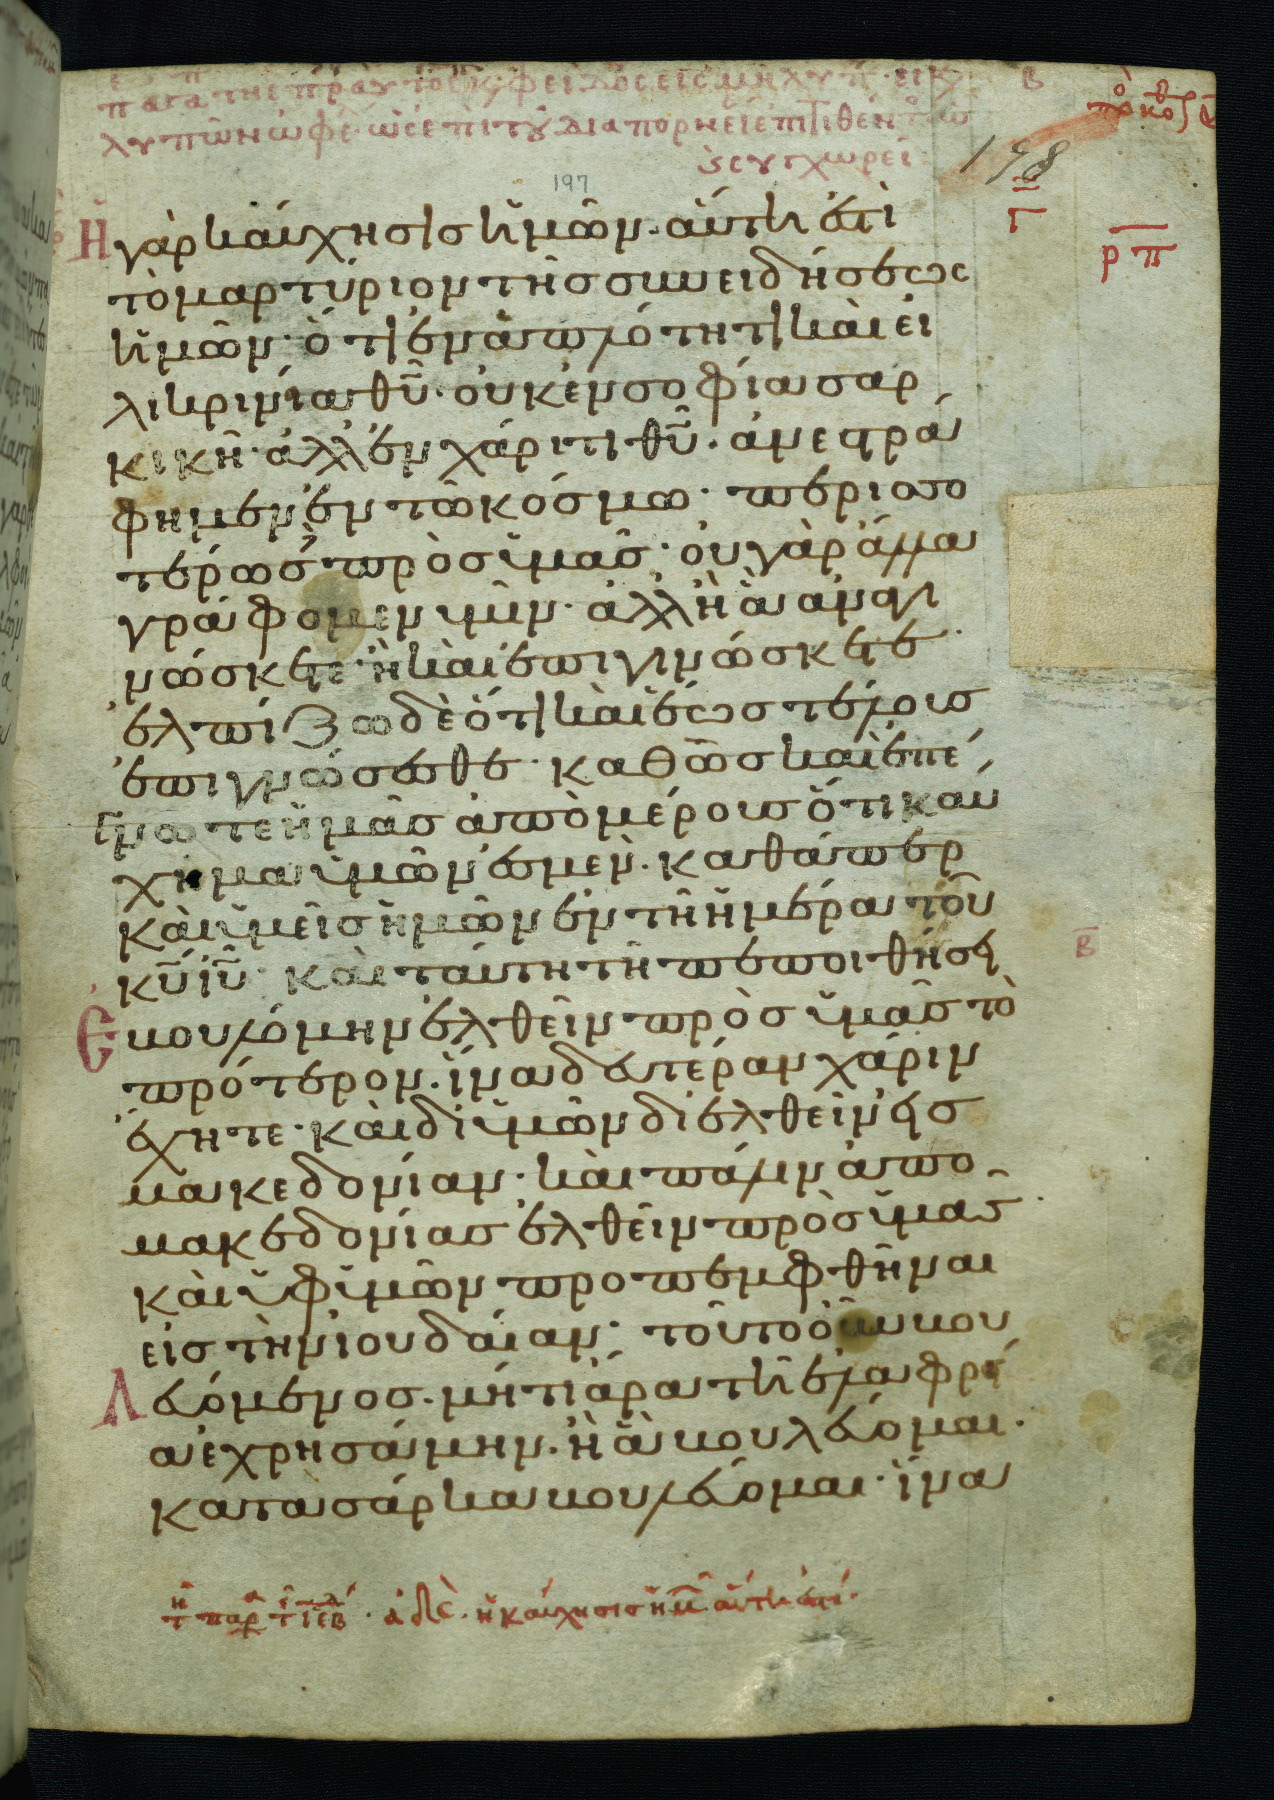 197
198
Γ
ρπ
Ἡ γὰρ καύχησις ἡμῶν. αὕτη ἐστὶ
τὸ μαρτύριον τῆς συνειδήσεως
ἡμῶν· ὅτι ἐν ἁπλότητι καὶ εἰ
λικρινία θ̅υ̅· οὐκ ἐν σοφία σαρ
κικῆ· ἀλλ' ἐν χάριτι θ̅υ̅. ἀνεστρά
φημεν ἐν τῶ κόσμω· περισσο
τέρως πρὸς ὑμᾶς· οὐ γὰρ ἄλλα
γράφομεν ὑμῖν· ἀλλ' ἢ ἃ ἀναγι
νώσκετε· ἢ καὶ ἐπιγινώσκετε·
ἐλπίζω δὲ ὅτι καὶ ἕως τέλους
ἐπιγνώσεσθε· καθὼς καὶ ἐπέ
γνωτε ἡμᾶς ἀπὸ μέρους ὅτι καύ
χημα ὑμῶν ἐσμεν. καθάπερ
καὶ ὑμεῖς ἡμῶν ἐν τῆ ἡμέρα τοῦ
κ̅υ̅ ι̅υ̅· καὶ ταύτη τῆ πεποιθήσει
Β
Ἐβουλόμην ἐλθεῖν πρὸς ὑμᾶς τὸ
πρότερον. ἵνα δευτέραν χάριν
ἔχητε· καὶ δι' ὑμῶν διελθεῖν εἰς
μακεδονίαν· καὶ πάλιν ἀπὸ
μακεδονίας ἐλθεῖν πρὸς ὑμᾶς
καὶ ὑφ' ὑμῶν προπεμφθῆναι
εἰς τὴν ἰουδαίαν· τοῦτο οὖν βου
Λευόμενος. μήτι ἄρα τῆ ἐλαφρί
α ἐχρησάμην. ἢ ἃ βουλεύομαι.
κατὰ σάρκα βουλεύομαι· ἵνα
ἀδε. ἡ καύχησις ἡμ αὕτη ἐστί.